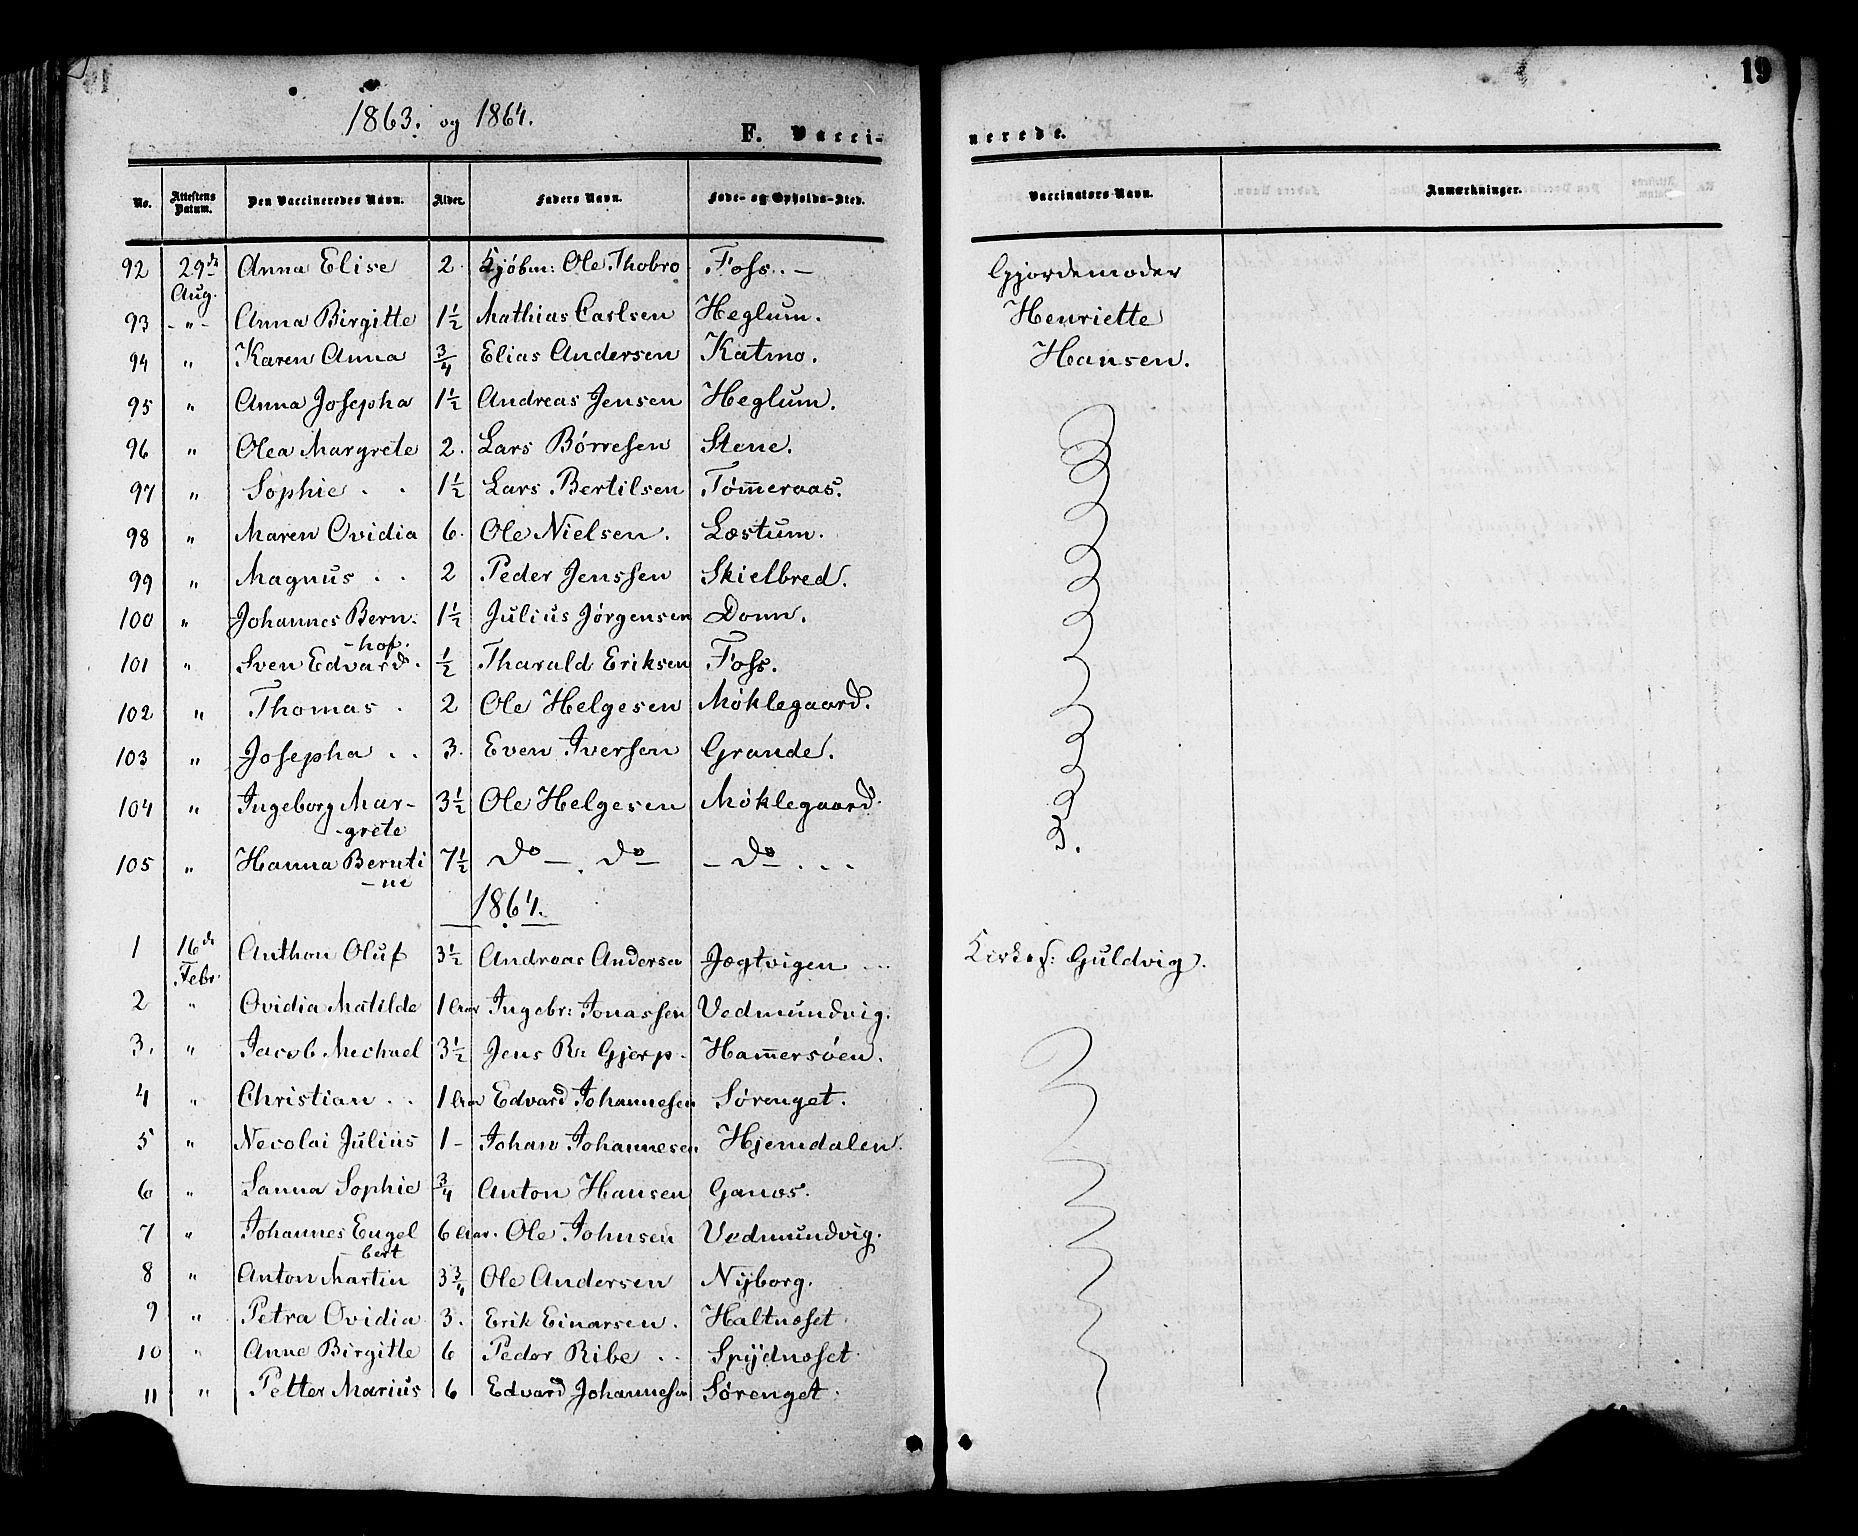 19
1863. og 1864.
F. Vacci-
nerede.
No. Attestens Datum. Den Vaccineredes Navn. Alder. Faders Navn. Føde- og Opholds-Sted. Vaccinators Navn. Anmærkninger.
92 29de Aug. Anna Elise 2. Kjøbm: Ole Thobro Foss. – Gjordemoder
93 -"- Anna Birgitte 1½ Mathias Carlsen Heglum. Henriette
94 " Karen Anna ¾ Elias Andersen Katmo. Hansen.
95 " Anna Josepha 1½ Andreas Jensen Heglum.
96 " Olea Margrete 2. Lars Børresen Stene.
97 " Sophie . . 1½ Lars Bertilsen Tøm̅eraas.
98 " Maren Ovidia 6. Ole Nielsen. Læstum.
99 " Magnus . . 2 Peder Jenssen Skielbred.
100 " Johannes Bern:
-hof. 1½ Julius Jørgensen Donn.
101 " Sven Edvard. ½ Tharald Eriksen Foss.
102 " Thomas . 2 Ole Helgesen Møklegaard.
103 " Josepha . . 3. Even Iversen Grande.
104 " Ingeborg Mar-
-grete 3½ Ole Helgesen Møklegaard.
105 " Hanna Bernti
-ne 7½ do – do – do – . . .
1864.
1 16de Febr. Anthon Oluf 3½ Andreas Andersen Jægtvigen ... Kirkes: Guldvig.
2 " Ovidia Matilde 1 Aar Ingebr: Jonassen Vedmundvig.
3. " Jacob Mechael 3½ Jens R: Gjerp. Ham̅ersøen.
4 " Christian . . 1 Aar Edvard Johannesen Sørenget.
5 " Necolai Julius 1 - Johan Johannesen Hjemdalen.
6 " Sanna Sophie ¾ Anton Hansen Ganæs.
7 " Johannes Engel
-bert 6 Aar. Ole Johnsen Vedmundvig.
8 " Anton Martin 3¾ Ole Andersen Nyborg.
9 " Petra Ovidia 3. Erik Einarsen. Haltnæset.
10 " Anne Birgitte 6 Peder Ribe . . Spydnæset.
11 " Petter Marius 6 Edvard Johannesen Sørenget.